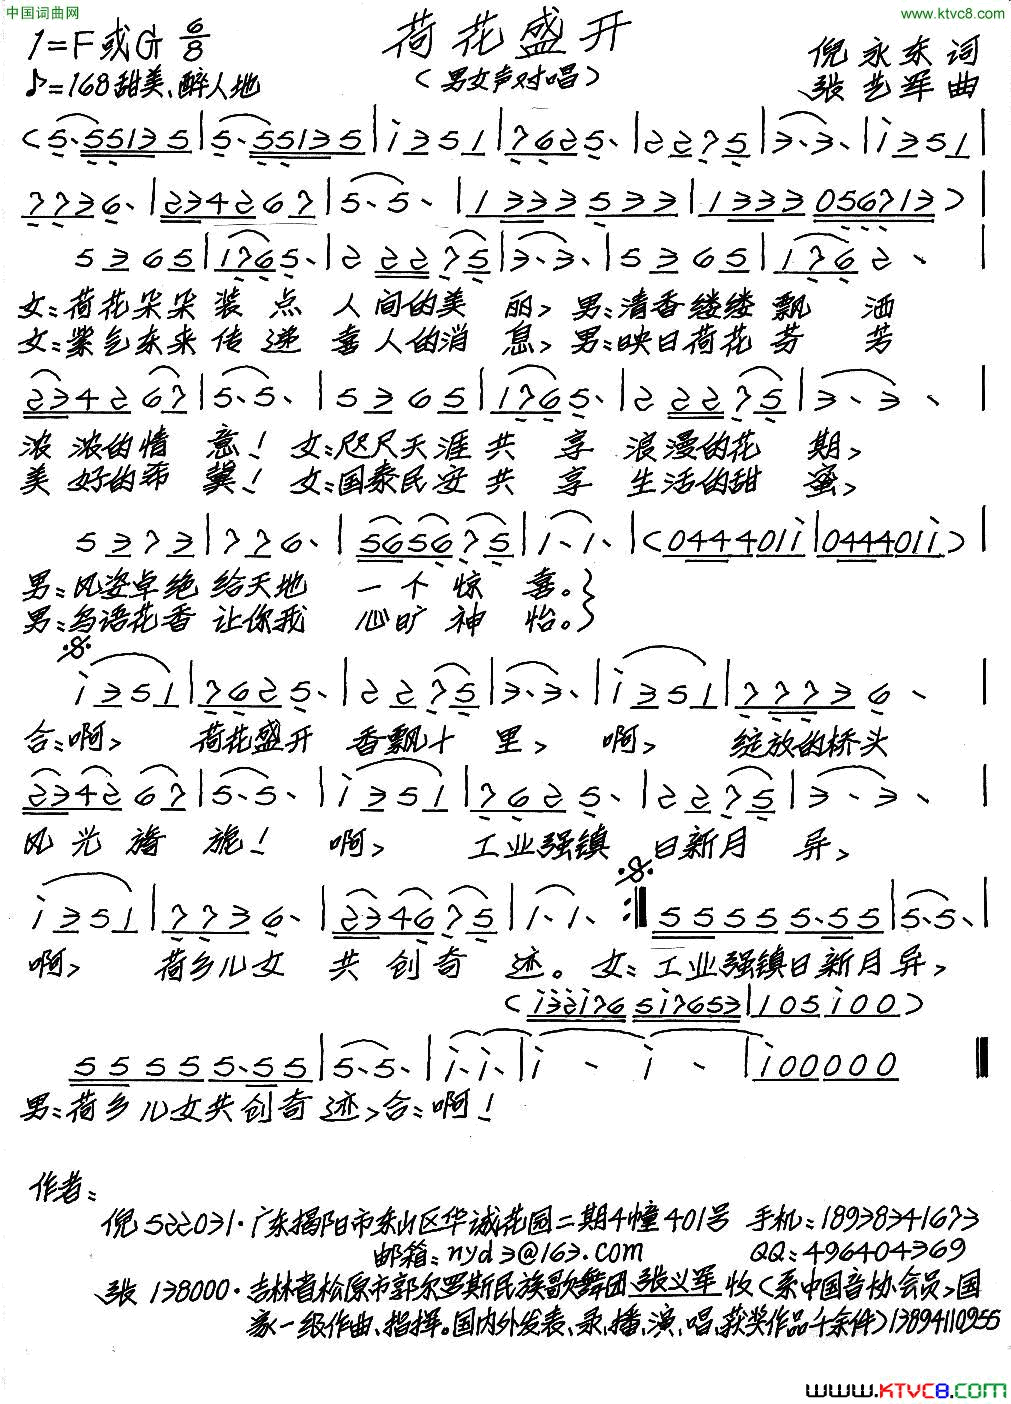 中国词曲网
www.ktvc8.com
荷花盛开
1=F或G 6/8
(男女声对唱)
倪永东 词
♪=168 甜美、醉人地
张艺军 曲
(5·55135|5·55135|i351|7625·|2275|3·3·|i351|
7736·|234267|5·5·|1333533|1333056713)|
5365|1765·|22275|3·3·|5365|1762·
女:荷花朵朵装点人间的美丽, 男:清香缕缕飘洒
女:紫气东来传递喜人的消息, 男:映日荷花芬芳
234267|5·5·|5365|1765·|22275|3·3·|
浓浓的情意! 女:咫尺天涯共享浪漫的花期,
美好的希冀! 女:国泰民安共享生活的甜蜜,
5373|776·|565675|1·1·|(044401i|044401i)|
男:风姿卓绝给天地一个惊喜。}
男:鸟语花香让你我心旷神怡。}
i351|7625·|2275|3·3·|i351|77736·|
合:啊, 荷花盛开香飘十里, 啊, 绽放的桥头
234267|5·5·|i351|7625·|2275|3·3·|
风光旖旎! 啊, 工业强镇日新月异,
i351|7736·|234675|1·1·:‖555555·55|5·5·|
啊, 荷乡儿女共创奇迹。女:工业强镇日新月异,
(i32i76 5i7653|105i00)
55555·55|5·5·|i·i·|i·i·|i00000‖
男:荷乡儿女共创奇迹, 合:啊!
作者:
倪 522031·广东揭阳市东山区华诚花园二期4幢401号 手机:18938341673
邮箱:nyd3@163.com QQ:496404369
张 138000·吉林省松原市郭尔罗斯民族歌舞团 张义军 收(系中国音协会员,国
家一级作曲、指挥。国内外发表、录、播、演、唱、获奖作品千余件)13894110955
www.KTVC8.com